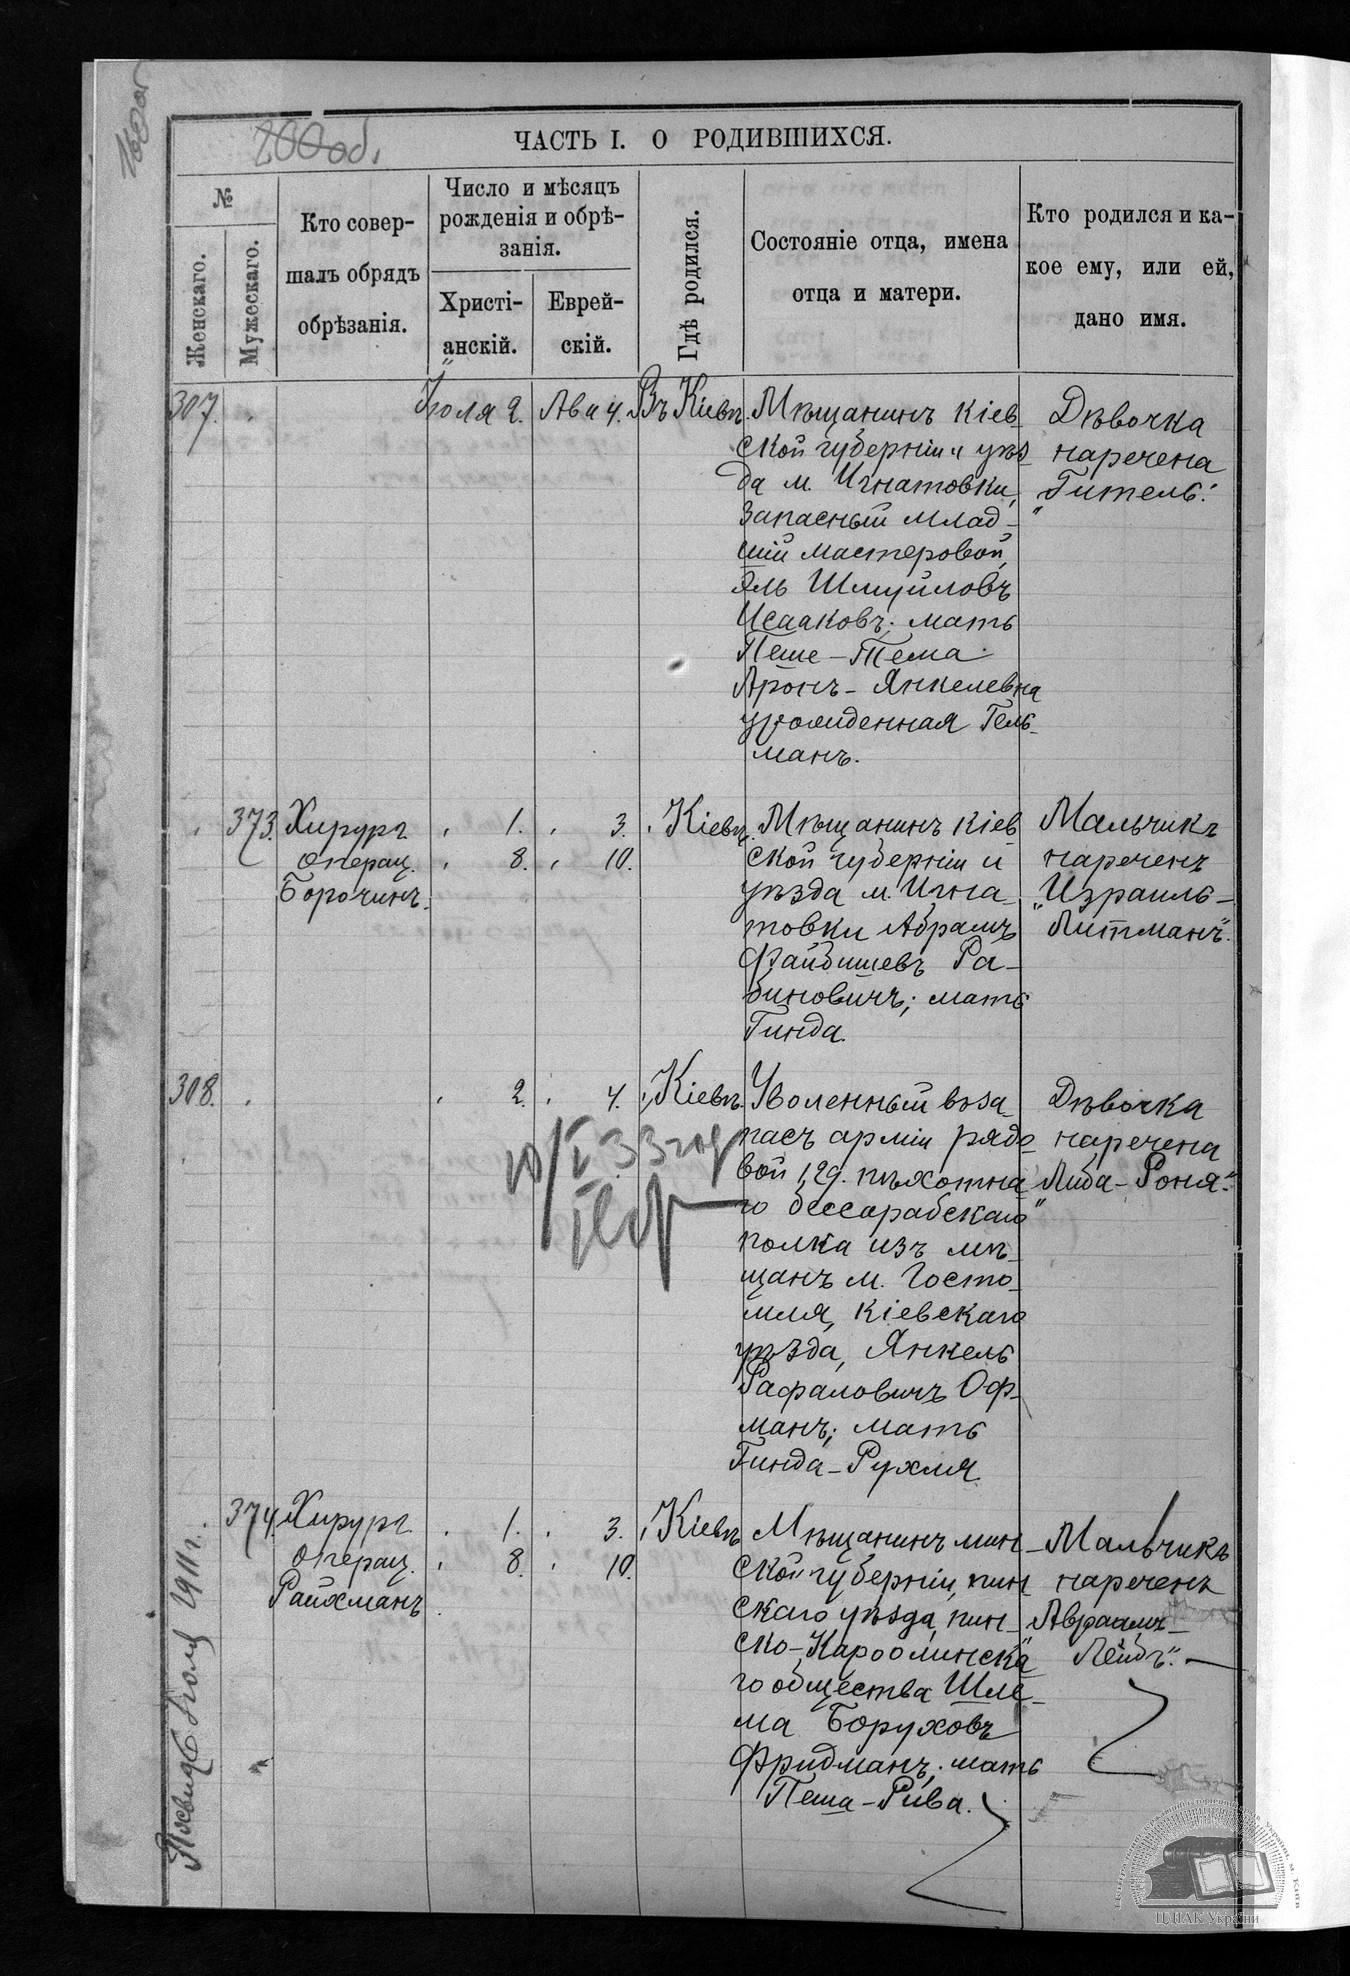 200об.
ЧАСТЬ I. О РОДИВШИХСЯ.
№
Женскаго.
Мужескаго.
Кто совер-
шалъ обрядъ
обрѣзанія.
Число и мѣсяцъ
рожденія и обрѣ-
занія.
Христі-
анскій.
Еврей-
скій.
Гдѣ родился.
Состояніе отца, имена
отца и матери.
Кто родился и ка-
кое ему, или ей,
дано имя.
307.
Іюля 2.
Ава 4.
Въ Кіевѣ.
Мѣщанинъ Кіев-
ской губерніи и уѣз-
да м. Игнатовки,
запасный млад-
шій мастеровой,
Эль Шмуйловъ
Исааковъ; мать
Пеше-Тема
Аронъ-Янкелевна
урожденная Гель-
манъ.
Дѣвочка
наречена
„Гитель“.
373.
Хирургъ
операц.
Борочинъ.
„ 1. „ 3.
„ 8. „ 10.
„ Кіевѣ.
Мѣщанинъ Кіев
ской губерніи и
уѣзда м. Игна-
товки Абрамъ
Файбишевъ Ра-
биновичъ; мать
Гинда.
Мальчикъ
нареченъ
„Израиль-
Литманъ“.
308.
„ 2. „ 4.
„ Кіевѣ.
Уволенный въ за-
пасъ арміи рядо-
вой 129. пѣхотна
го бессарабскаго
полка изъ мѣ-
щанъ м. Госто-
мля, Кіевскаго
уѣзда, Янкель
Рафаловичъ Оф-
манъ; мать
Гинда-Рухля.
Дѣвочка
наречена
„Либа-Роня“.
374.
Хирургъ
операц.
Райхманъ.
„ 1. „ 3.
„ 8. „ 10.
„ Кіевѣ
Мѣщанинъ мин-
ской губерніи, пин
скаго уѣзда, пин-
ско-Каролинска
го общества Шле-
ма Боруховъ
Фридманъ; мать
Пеша-Рива.
Мальчикъ
нареченъ
„Авраамъ-
Лейбъ“.
Іюля 1911 г.
ЦДІАК України